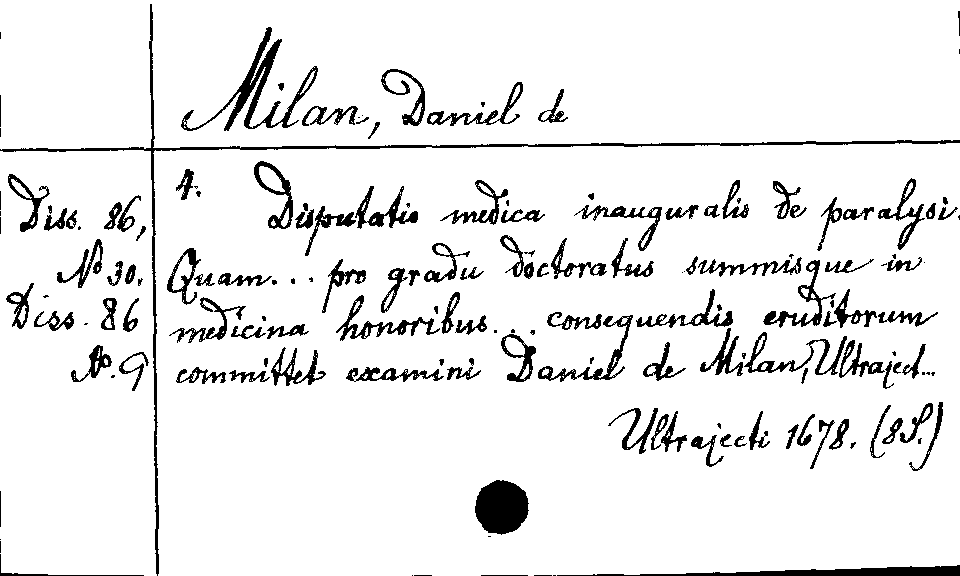 Milan, Daniel de
Diss. 86,
No 30.
Diss. 86
No. 9
4. Disputatio medica inauguralis de paralysi.
Quam... pro gradu doctoratus summisque in
medicina honoribus... consequendis eruditorum
committet examini Daniel de Milan, Ultraject...
Ultrajecti 1678. (8S.)